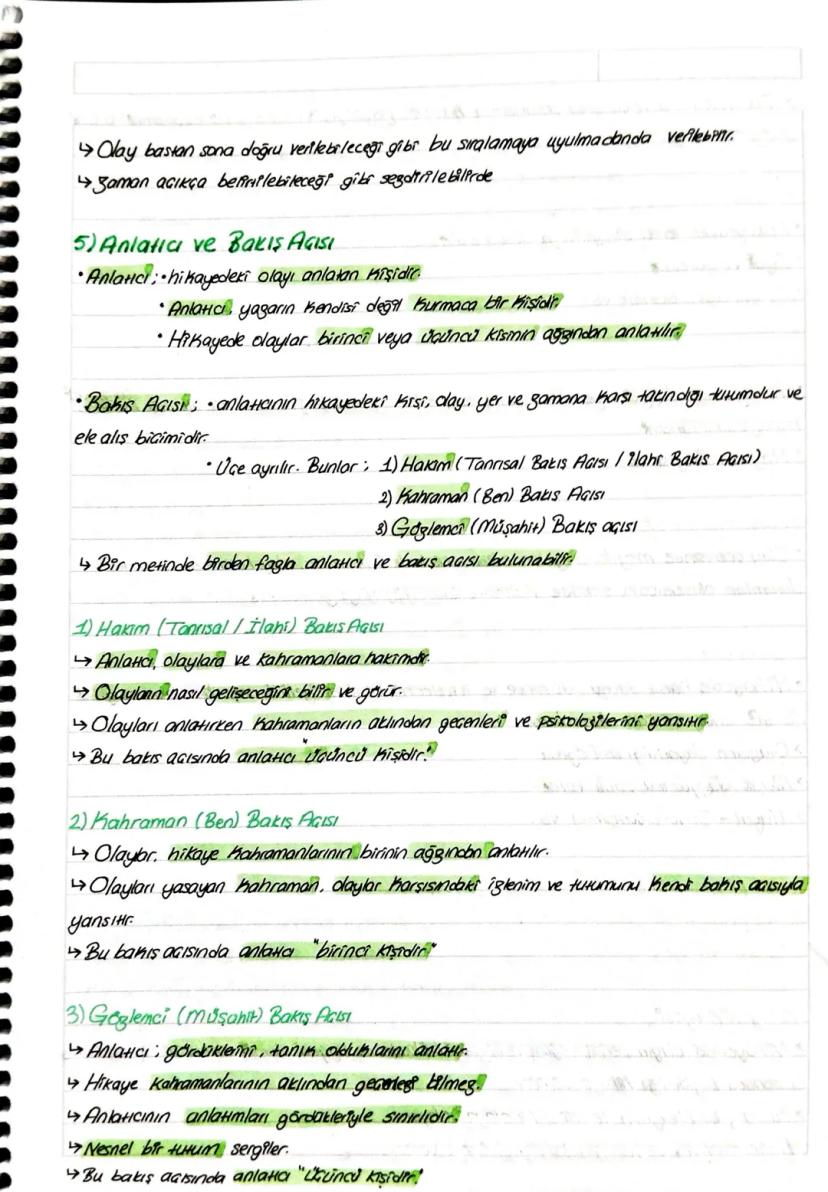 ↳ Olay baştan sona doğru verilebileceği gibi bu sıralamaya uyulmadanda verilebilir.
↳ Zaman açıkça belirtilebileceği gibi sezdirilebilirde
5) Anlatıcı ve Bakış Açısı
• Anlatıcı; • hikayedeki olayı anlatan kişidir.
• Anlatıcı, yazarın kendisi değil kurmaca bir kişidir.
• Hikayede olaylar birinci veya üçüncü kişinin ağzından anlatılır.
• Bakış Açısı; • anlatıcının hikayedeki kişi, olay, yer ve zamana karşı takındığı tutumdur ve
ele alış biçimidir.
• Üçe ayrılır. Bunlar; 1) Hakim (Tanrısal Bakış Açısı / İlahi Bakış Açısı)
2) Kahraman (Ben) Bakış Açısı
3) Gözlemci (Müşahit) Bakış açısı
↳ Bir metinde birden fazla anlatıcı ve bakış açısı bulunabilir.
1) Hakim (Tanrısal / İlahi) Bakış Açısı
↳ Anlatıcı, olaylara ve kahramanlara hakimdir.
↳ Olayların nasıl gelişeceğini bilir ve görür.
↳ Olayları anlatırken kahramanların aklından geçenleri ve psikolojilerini yansıtır.
↳ Bu bakış açısında anlatıcı "üçüncü kişidir."
2) Kahraman (Ben) Bakış Açısı
↳ Olaylar, hikaye kahramanlarının birinin ağzından anlatılır.
↳ Olayları yaşayan kahraman, olaylar karşısındaki izlenim ve tutumunu kendi bakış açısıyla
yansıtır.
↳ Bu bakış açısında anlatıcı "birinci kişidir"
3) Gözlemci (Müşahit) Bakış Açısı
↳ Anlatıcı; gördüklerini, tanık olduklarını anlatır.
↳ Hikaye kahramanlarının aklından geçenleri bilmez.
↳ Anlatıcının anlatımları gördükleriyle sınırlıdır.
↳ Nesnel bir tutum sergiler.
↳ Bu bakış açısında anlatıcı "üçüncü kişidir"